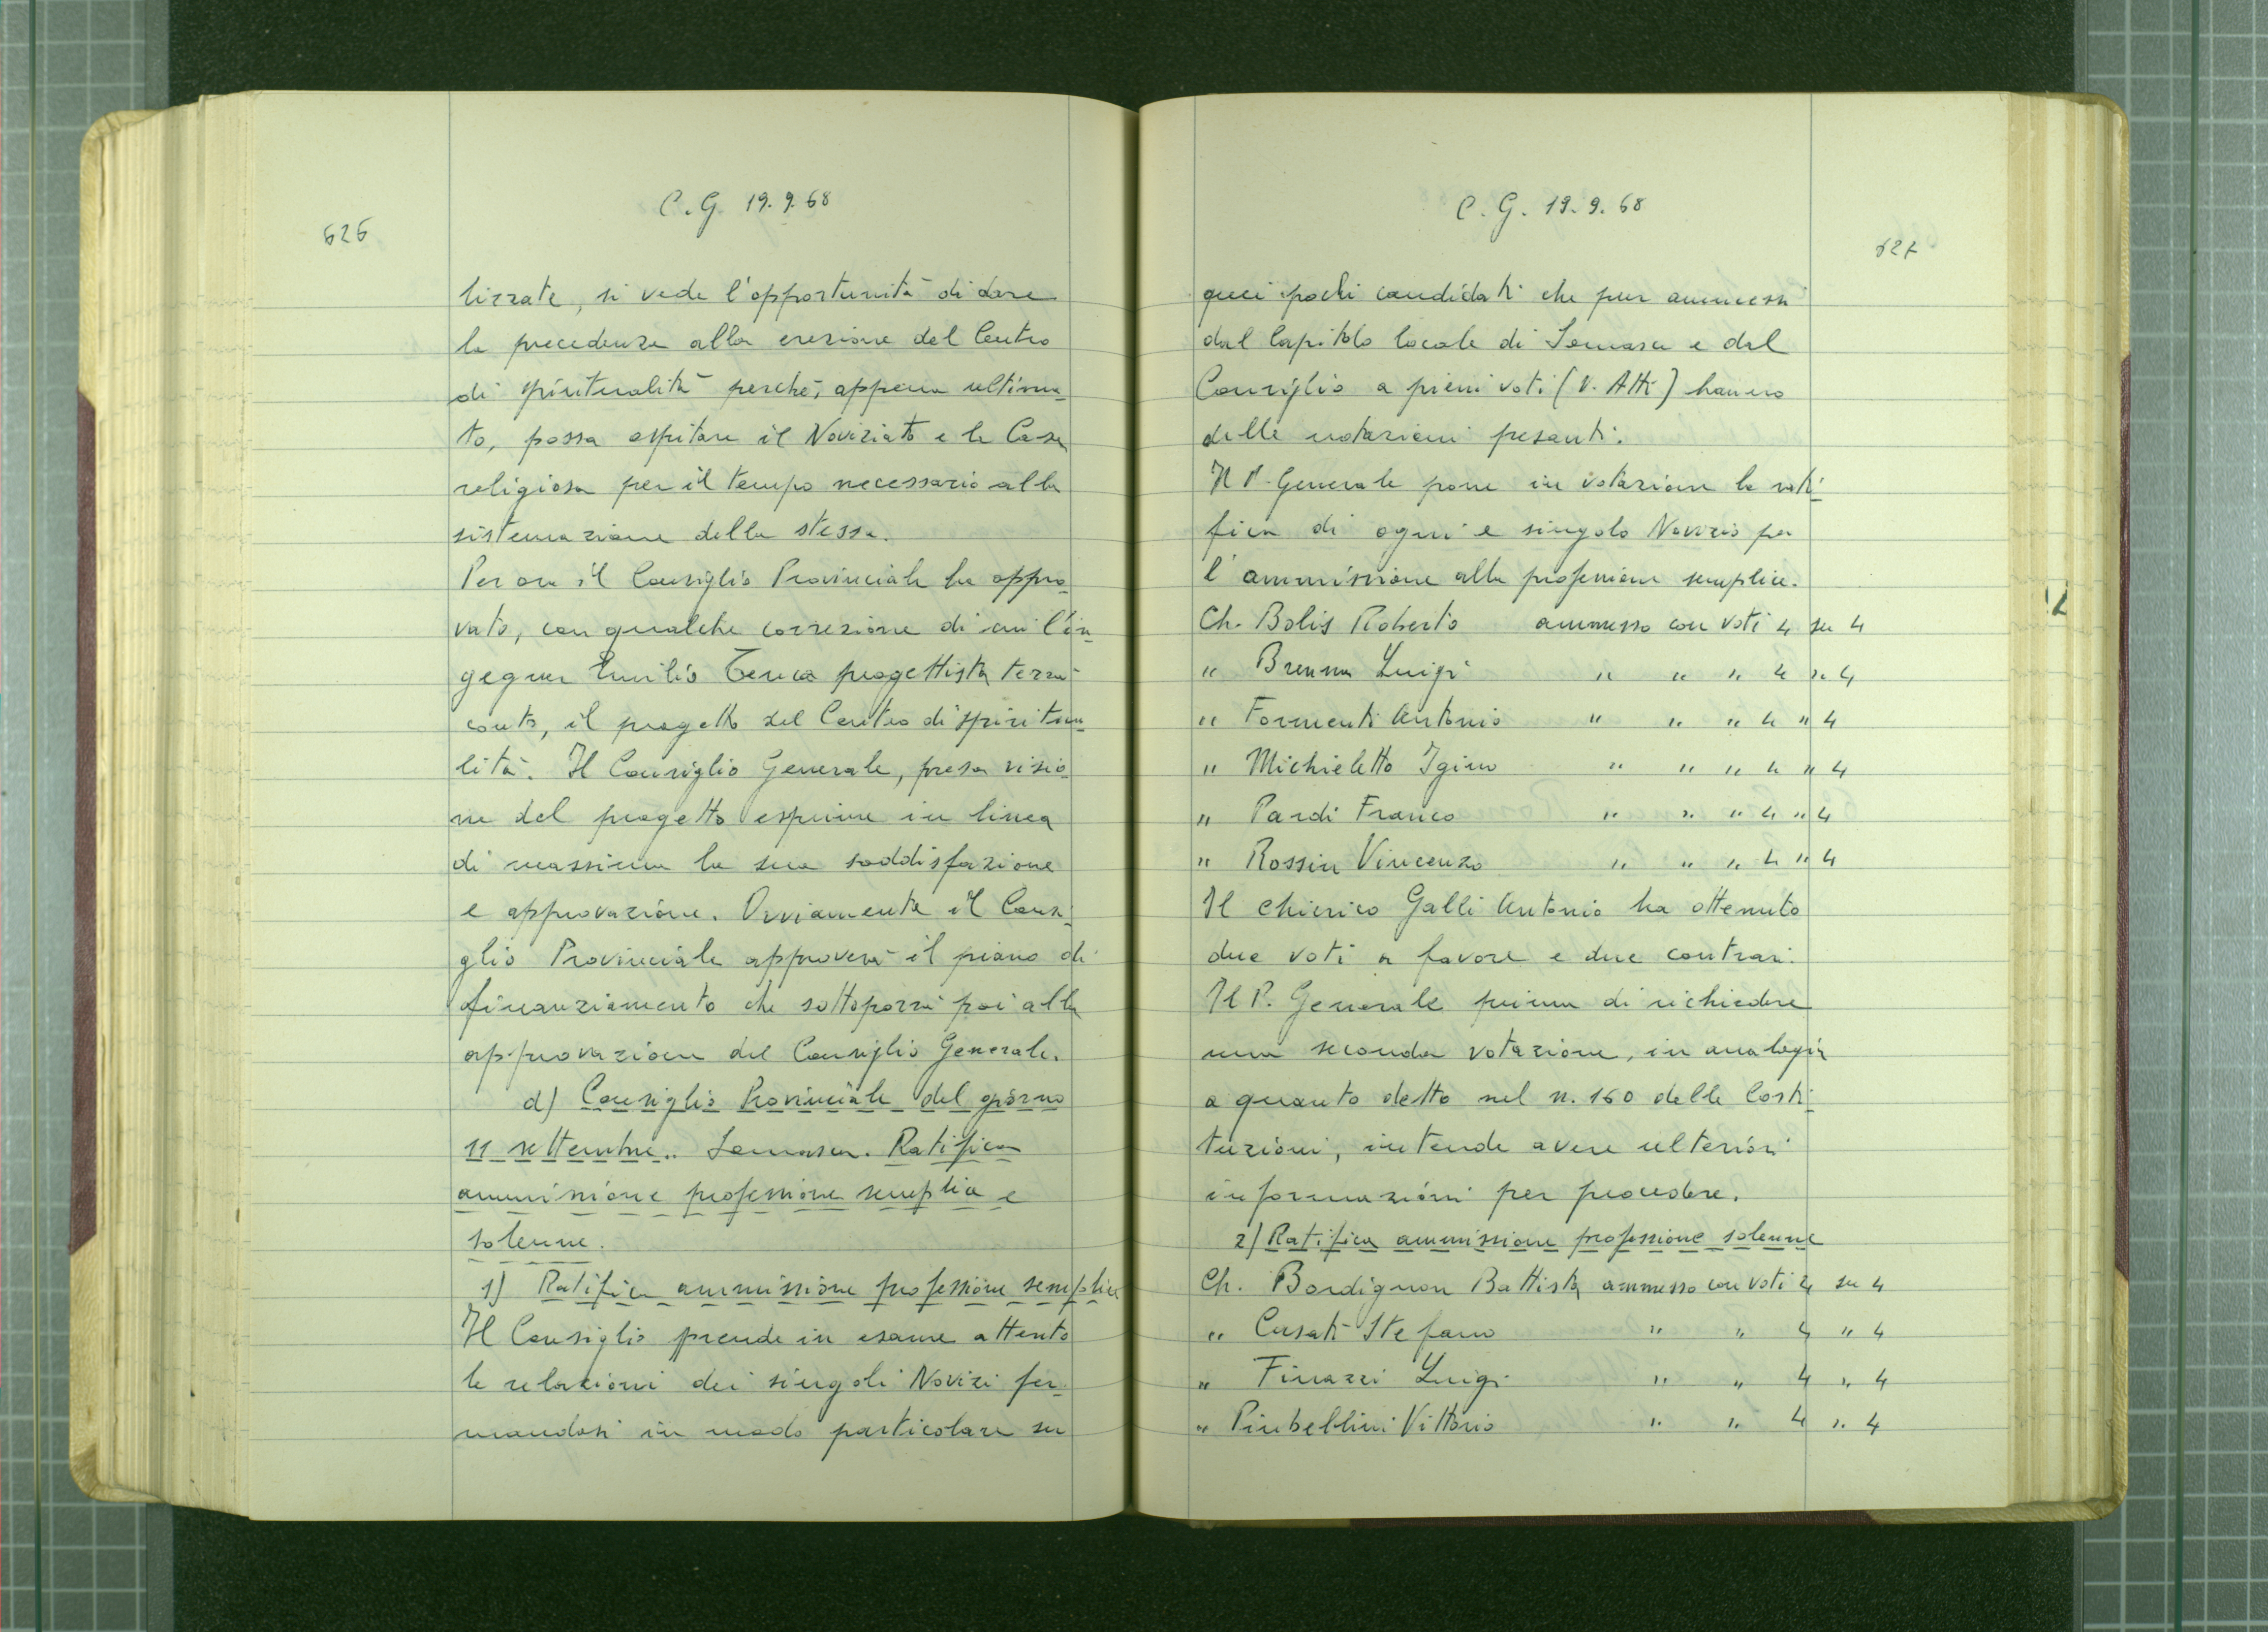 C.G. 19.9.68
626
lizzate, si vede l'opportunità di dare
la precedenza alla erezione del Centro
di spiritualità perché, appena ultima_
to, possa ospitare il Noviziato e la Casa
religiosa per il tempo necessario alla
sistemazione della stessa.
Per ora il Consiglio Provinciale ha appro_
vato, con qualche correzione di cui l'in_
gegner Emilio Tenca progettista terrà
conto, il progetto del Centro di spiritua_
lità. Il Consiglio Generale, presa visio_
ne del progetto esprime in linea
di massima la sua soddisfazione
e approvazione. Ovviamente il Consi_
glio Provinciale approverà il piano di
finanziamento che sottoporrà poi alla
approvazione del Consiglio Generale.
d) Consiglio Provinciale del giorno
11 settembre.. Somasca. Ratifica
ammissione professione semplice e
solenne.
1) Ratifica ammissione professione semplice
Il Consiglio prende in esame attento
le relazioni dei singoli Novizi fer_
mandosi in modo particolare su
C.G. 19.9.68
627
quei pochi candidati che pur ammessi
dal Capitolo locale di Somasca e dal
Consiglio a pieni voti (V. Atti) hanno
delle notazioni pesanti.
Il P. Generale pone in votazione la rati_
fica di ogni e singolo Novizio per
l'ammissione alla professione semplice.
Ch. Bolis Roberto ammesso con voti 4 su 4
" Brenna Luigi " " " 4 " 4
" Formenti Antonio " " " 4 " 4
" Michieletto Igino " " " 4 " 4
" Pardi Franco " " " 4 " 4
" Rossin Vincenzo " " " 4 " 4
Il chierico Galli Antonio ha ottenuto
due voti a favore e due contrari.
Il P. Generale prima di richiedere
una seconda votazione, in analogia
a quanto detto nel n. 160 delle Costi_
tuzioni, intende avere ulteriori
informazioni per procedere.
2) Ratifica ammissione professione solenne
Ch. Bordignon Battista ammesso con voti 4 su 4
" Casati Stefano " " 4 " 4
" Finazzi Luigi " " 4 " 4
" Pinbellini Vittorio " " 4 " 4